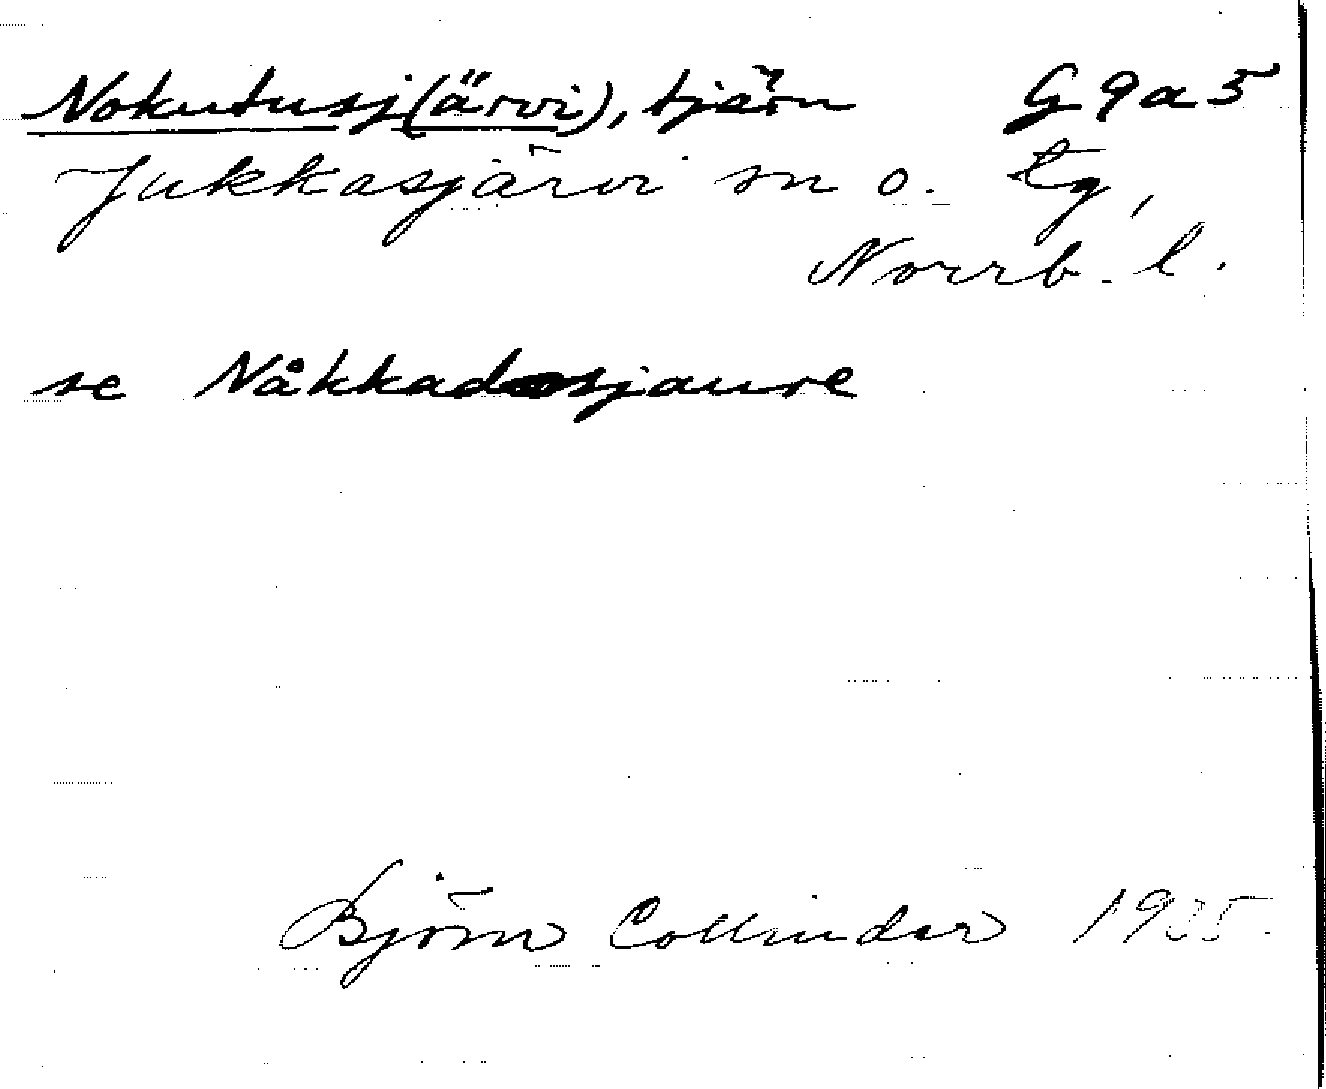 Nokutusj(ärvi), tjärn G9a5
Jukkasjärvi sn o. tg,
Norrb. l.
se Nåkkadosjaure
Björn Collinder 1935.